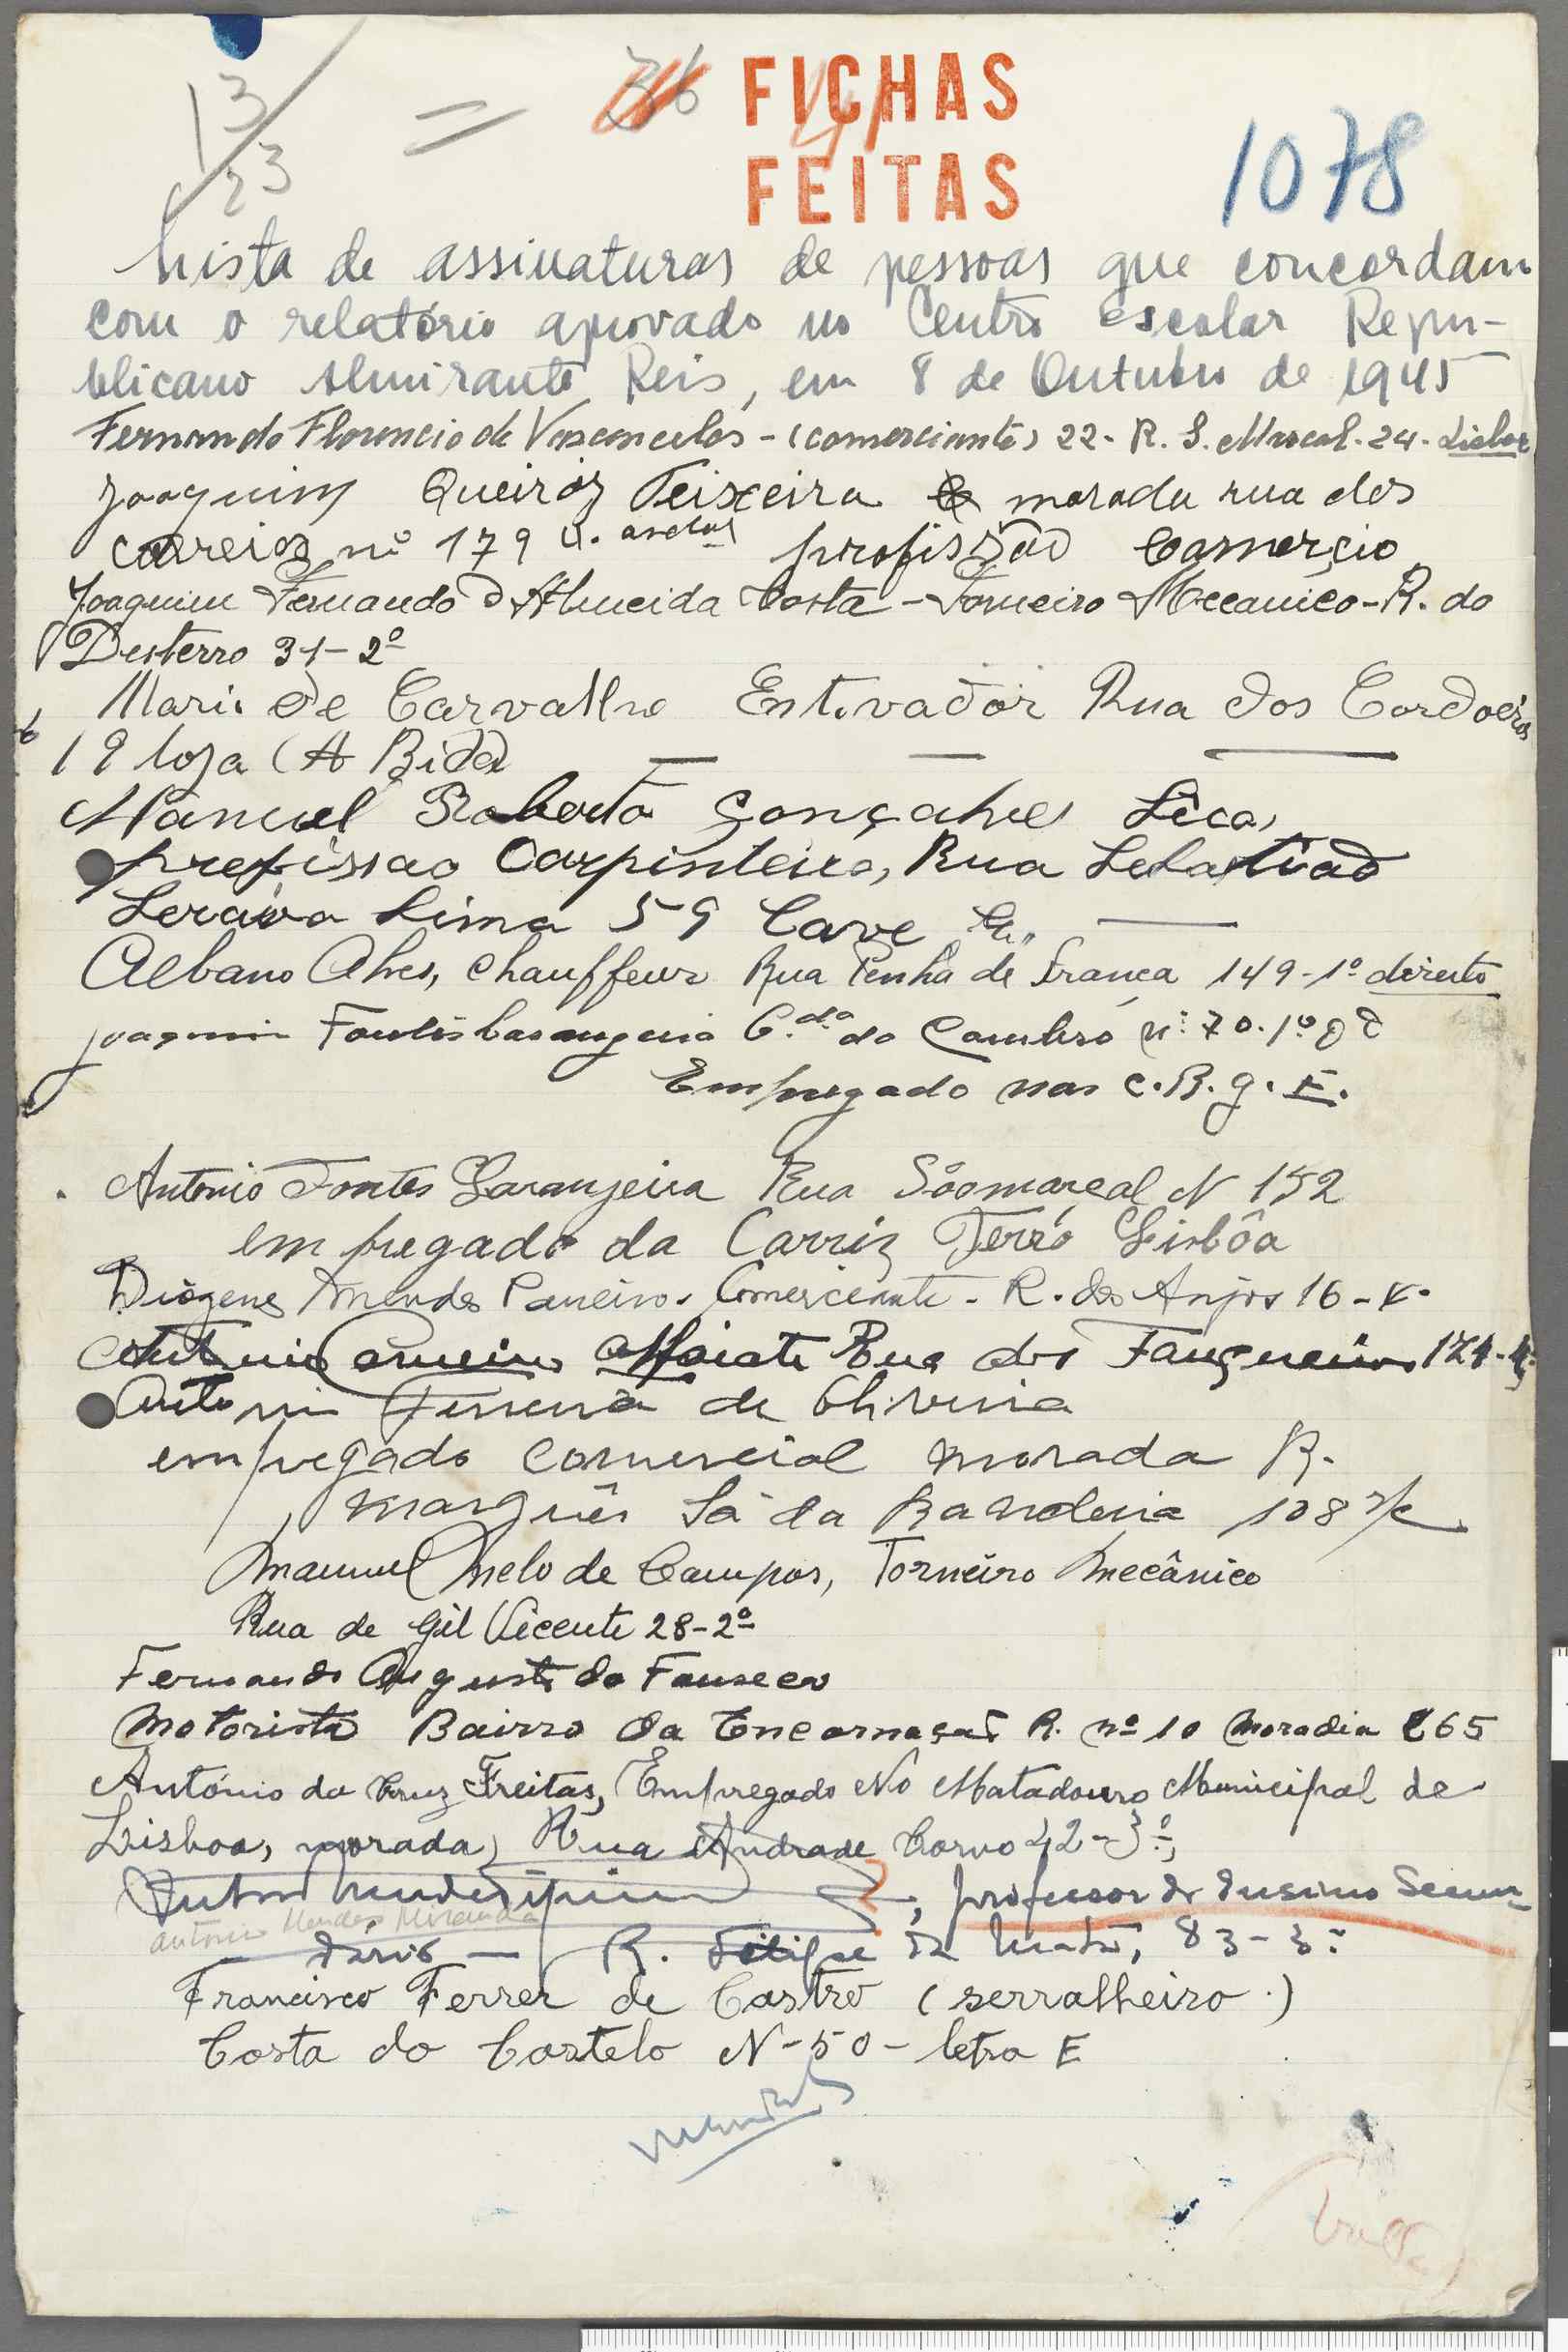 13
23
=
36
41
FICHAS
FEITAS
1078
Lista de assinaturas de pessoas que concordam
com o relatório aprovado no Centro escolar Repu-
blicano Almirante Reis, em 8 de Outubro de 1945
Fernando Florencio de Vasconcelos - (comerciante) 22 - R. S. Marçal - 24 - Lisboa
Joaquim Queiróz Teixeira morada rua dos
Correios nº 179 4. andar profissão Comercio
Joaquim Fernando d'Almeida Costa - Torneiro Mecanico - R. do
Desterro 31 - 2º
Mario de Carvalho Estivador Rua dos Cordoeiros
19 loja (A Bica)
Manuel Roberto Gonçalves
profissao Carpinteiro, Rua Sebastiao
Seraiva Lima 59 Cave
Albano Alves, Chauffeur Rua Penha de França 149 - 1º direito
Joaquim Fontes Larangeira C.da do Combro nº 70 - 1º
Empregado nas C.R.G.E.
Antonio Fontes Laranjeira Rua Sãomarçal N 152
empregado da Carriz Ferro Lisbôa
Diógenes Mendes Carneiro. Comerciante - R. dos Anjos 16 -
Antonio Carneiro Alfaiate Rua dos Fanqueiros 174 - 4º
Antonio Ferreira de Oliveira
empregado comercial morada R.
Marquês Sá da Bandeira 108 r/c
Manuel Melo de Campos, Torneiro Mecânico
Rua de Gil Vicente 28 - 2º
Fernando Augusto da Fonseca
Motorista Bairro da Encarnação R. nº 10 Moradia 65
António da Cruz Freitas, Empregado No Matadouro Municipal de
Lisboa, morada, Rua Andrade Corvo 42 - 3º,
, professor do Ensino Secun-
antonio Mendes Miranda
dário - R. Filipe da Mata, 83 - 3º
Francisco Ferrer de Castro (serralheiro.)
Costa do Castelo N - 50 - letra E